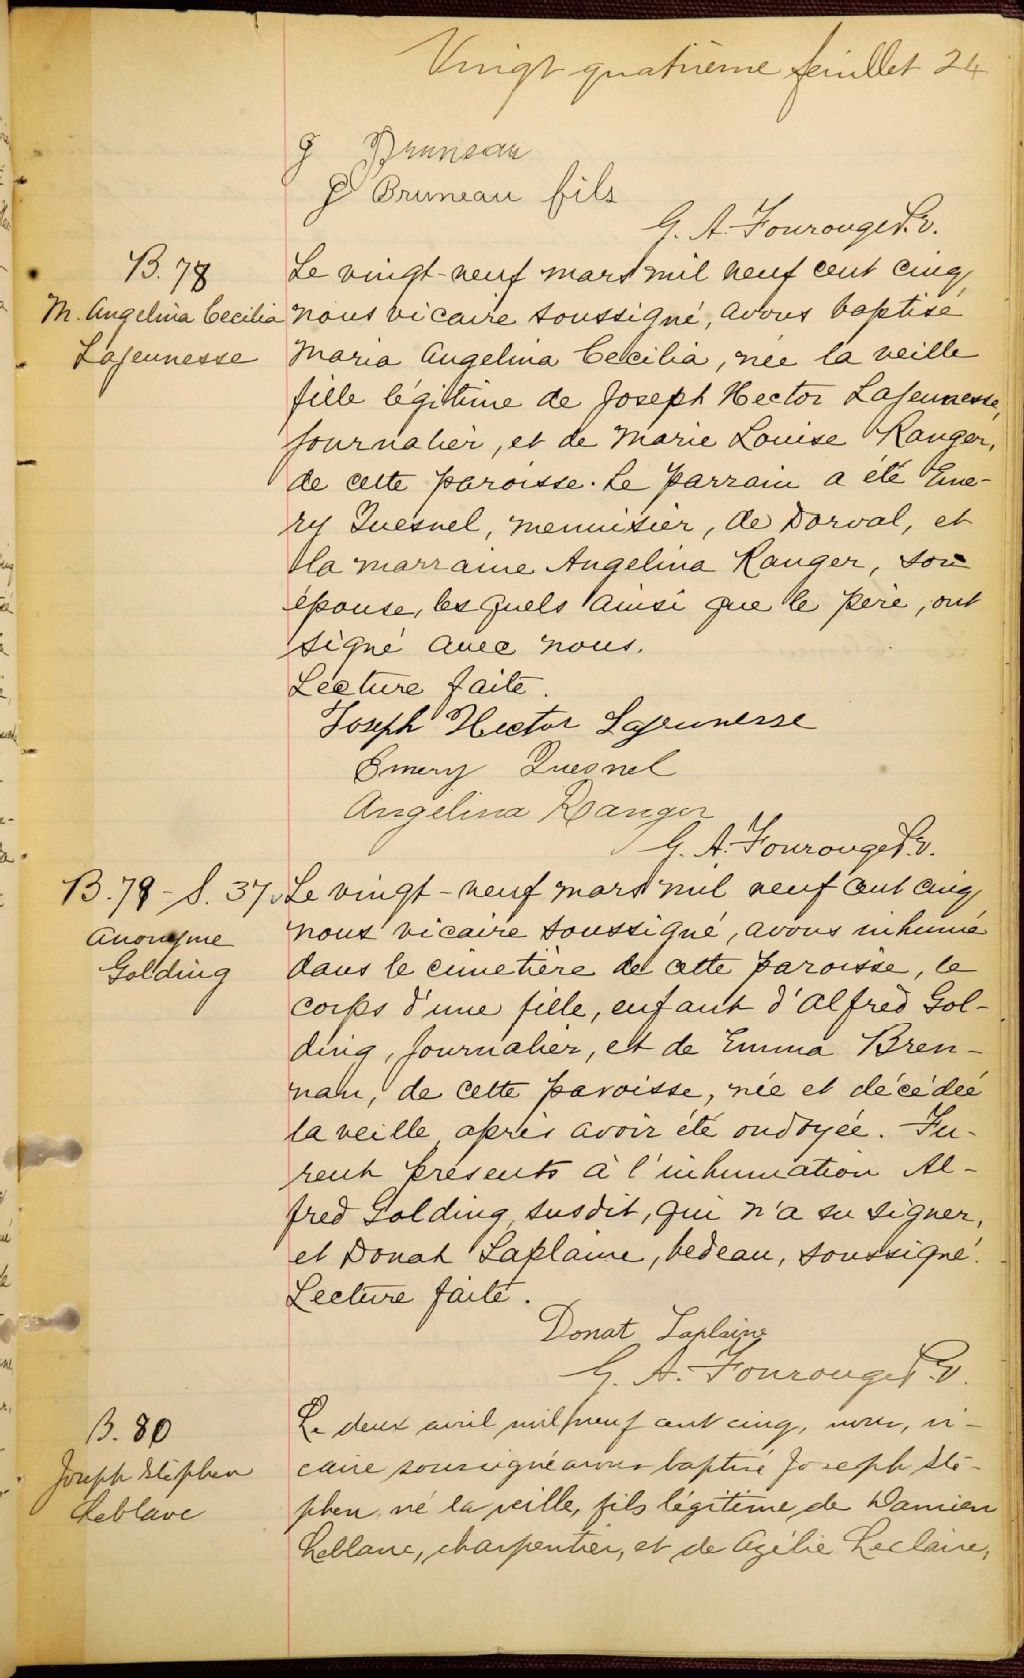 Vingt quatrième feuillet 24
J Bruneau
J Bruneau fils
G. A. Fourouge P.V.
B. 78
M. Angelina Cecilia
Lajeunesse
Le vingt-neuf mars mil neuf cent cinq,
nous vicaire soussigné, avons baptisé
Maria Angelina Cecilia, née la veille
fille légitime de Joseph Hector Lajeunesse,
journalier, et de Marie Louise Ranger,
de cette paroisse. Le parrain a été Eme-
ry Quesnel, menuisier, de Dorval, et
la marraine Angelina Ranger, son
épouse, lesquels ainsi que le père, ont
signé avec nous.
Lecture faite.
Joseph Hector Lajeunesse
Emery Quesnel
Angelina Ranger
G. A. Fourouge P.V.
B. 79 - S. 37
Anonyme
Golding
Le vingt-neuf mars mil neuf cent cinq
nous vicaire soussigné, avons inhumé
dans le cimetière de cette paroisse, le
corps d'une fille, enfant d'Alfred Gol-
ding, journalier, et de Emma Bren-
nan, de cette paroisse, née et décédée
la veille, après avoir été ondoyée. Fu-
rent présents à l'inhumation Al-
fred Golding, susdit, qui n'a su signer,
et Donat Laplaine, bedeau, soussigné.
Lecture faite.
Donat Laplaine
G. A. Fourouge P.V.
B. 80
Joseph Stephen
Leblanc
Le deux avril mil neuf cent cinq, nous, vi-
caire soussigné avons baptisé Joseph Ste-
phen, né la veille, fils légitime de Damien
Leblanc, charpentier, et de Azélie Leclaire,